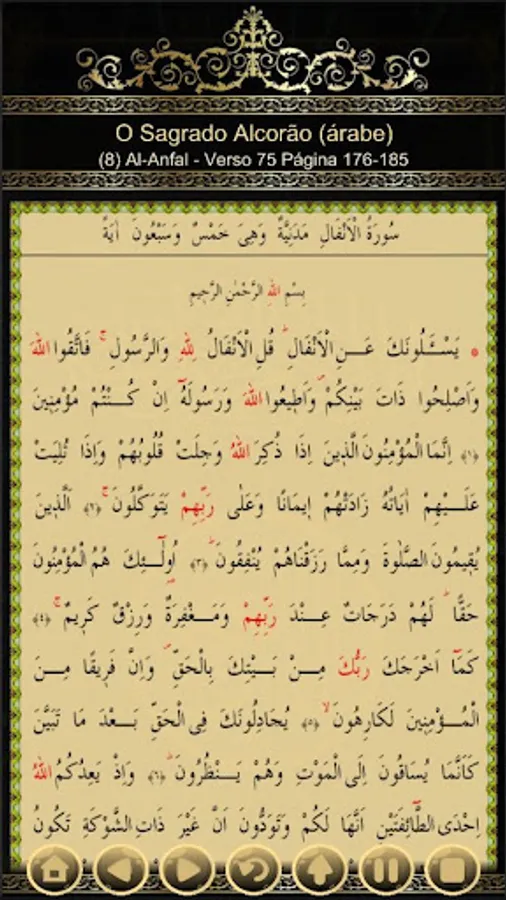 O Sagrado Alcorão (árabe)
(8) Al-Anfal - Verso 75 Página 176-185
سُورَةُ الْاَنْفَالِ مَدَنِيَّةٌ وَهِىَ خَمْسٌ وَسَبْعُونَ اٰيَةً
بِسْمِ اللهِ الرَّحْمٰنِ الرَّحِيمِ
* يَسْـَٔلُونَكَ عَنِ الْاَنْفَالِۜ قُلِ الْاَنْفَالُ لِلّٰهِ وَالرَّسُولِۚ فَاتَّقُوا اللهَ
وَاَصْلِحُوا ذَاتَ بَيْنِكُمْۖ وَاَطِيعُوا اللهَ وَرَسُولَهُٓ اِنْ كُنْتُمْ مُؤْمِنِينَ
﴿١﴾ اِنَّمَا الْمُؤْمِنُونَ الَّذِينَ اِذَا ذُكِرَ اللهُ وَجِلَتْ قُلُوبُهُمْ وَاِذَا تُلِيَتْ
عَلَيْهِمْ اٰيَاتُهُ زَادَتْهُمْ اِيمَانًا وَعَلٰى رَبِّهِمْ يَتَوَكَّلُونَۚ ﴿٢﴾ اَلَّذِينَ
يُقِيمُونَ الصَّلٰوةَ وَمِمَّا رَزَقْنَاهُمْ يُنْفِقُونَۜ ﴿٣﴾ اُولٰٓئِكَ هُمُ الْمُؤْمِنُونَ
حَقًّاۜ لَهُمْ دَرَجَاتٌ عِنْدَ رَبِّهِمْ وَمَغْفِرَةٌ وَرِزْقٌ كَرِيمٌۚ ﴿٤﴾
كَمَٓا اَخْرَجَكَ رَبُّكَ مِنْ بَيْتِكَ بِالْحَقِّۖ وَاِنَّ فَرِيقًا مِنَ
الْمُؤْمِنِينَ لَكَارِهُونَۙ ﴿٥﴾ يُجَادِلُونَكَ فِى الْحَقِّ بَعْدَ مَا تَبَيَّنَ
كَاَنَّمَا يُسَاقُونَ اِلَى الْمَوْتِ وَهُمْ يَنْظُرُونَۜ ﴿٦﴾ وَاِذْ يَعِدُكُمُ اللهُ
اِحْدَى الطَّٓائِفَتَيْنِ اَنَّهَا لَكُمْ وَتَوَدُّونَ اَنَّ غَيْرَ ذَاتِ الشَّوْكَةِ تَكُونُ